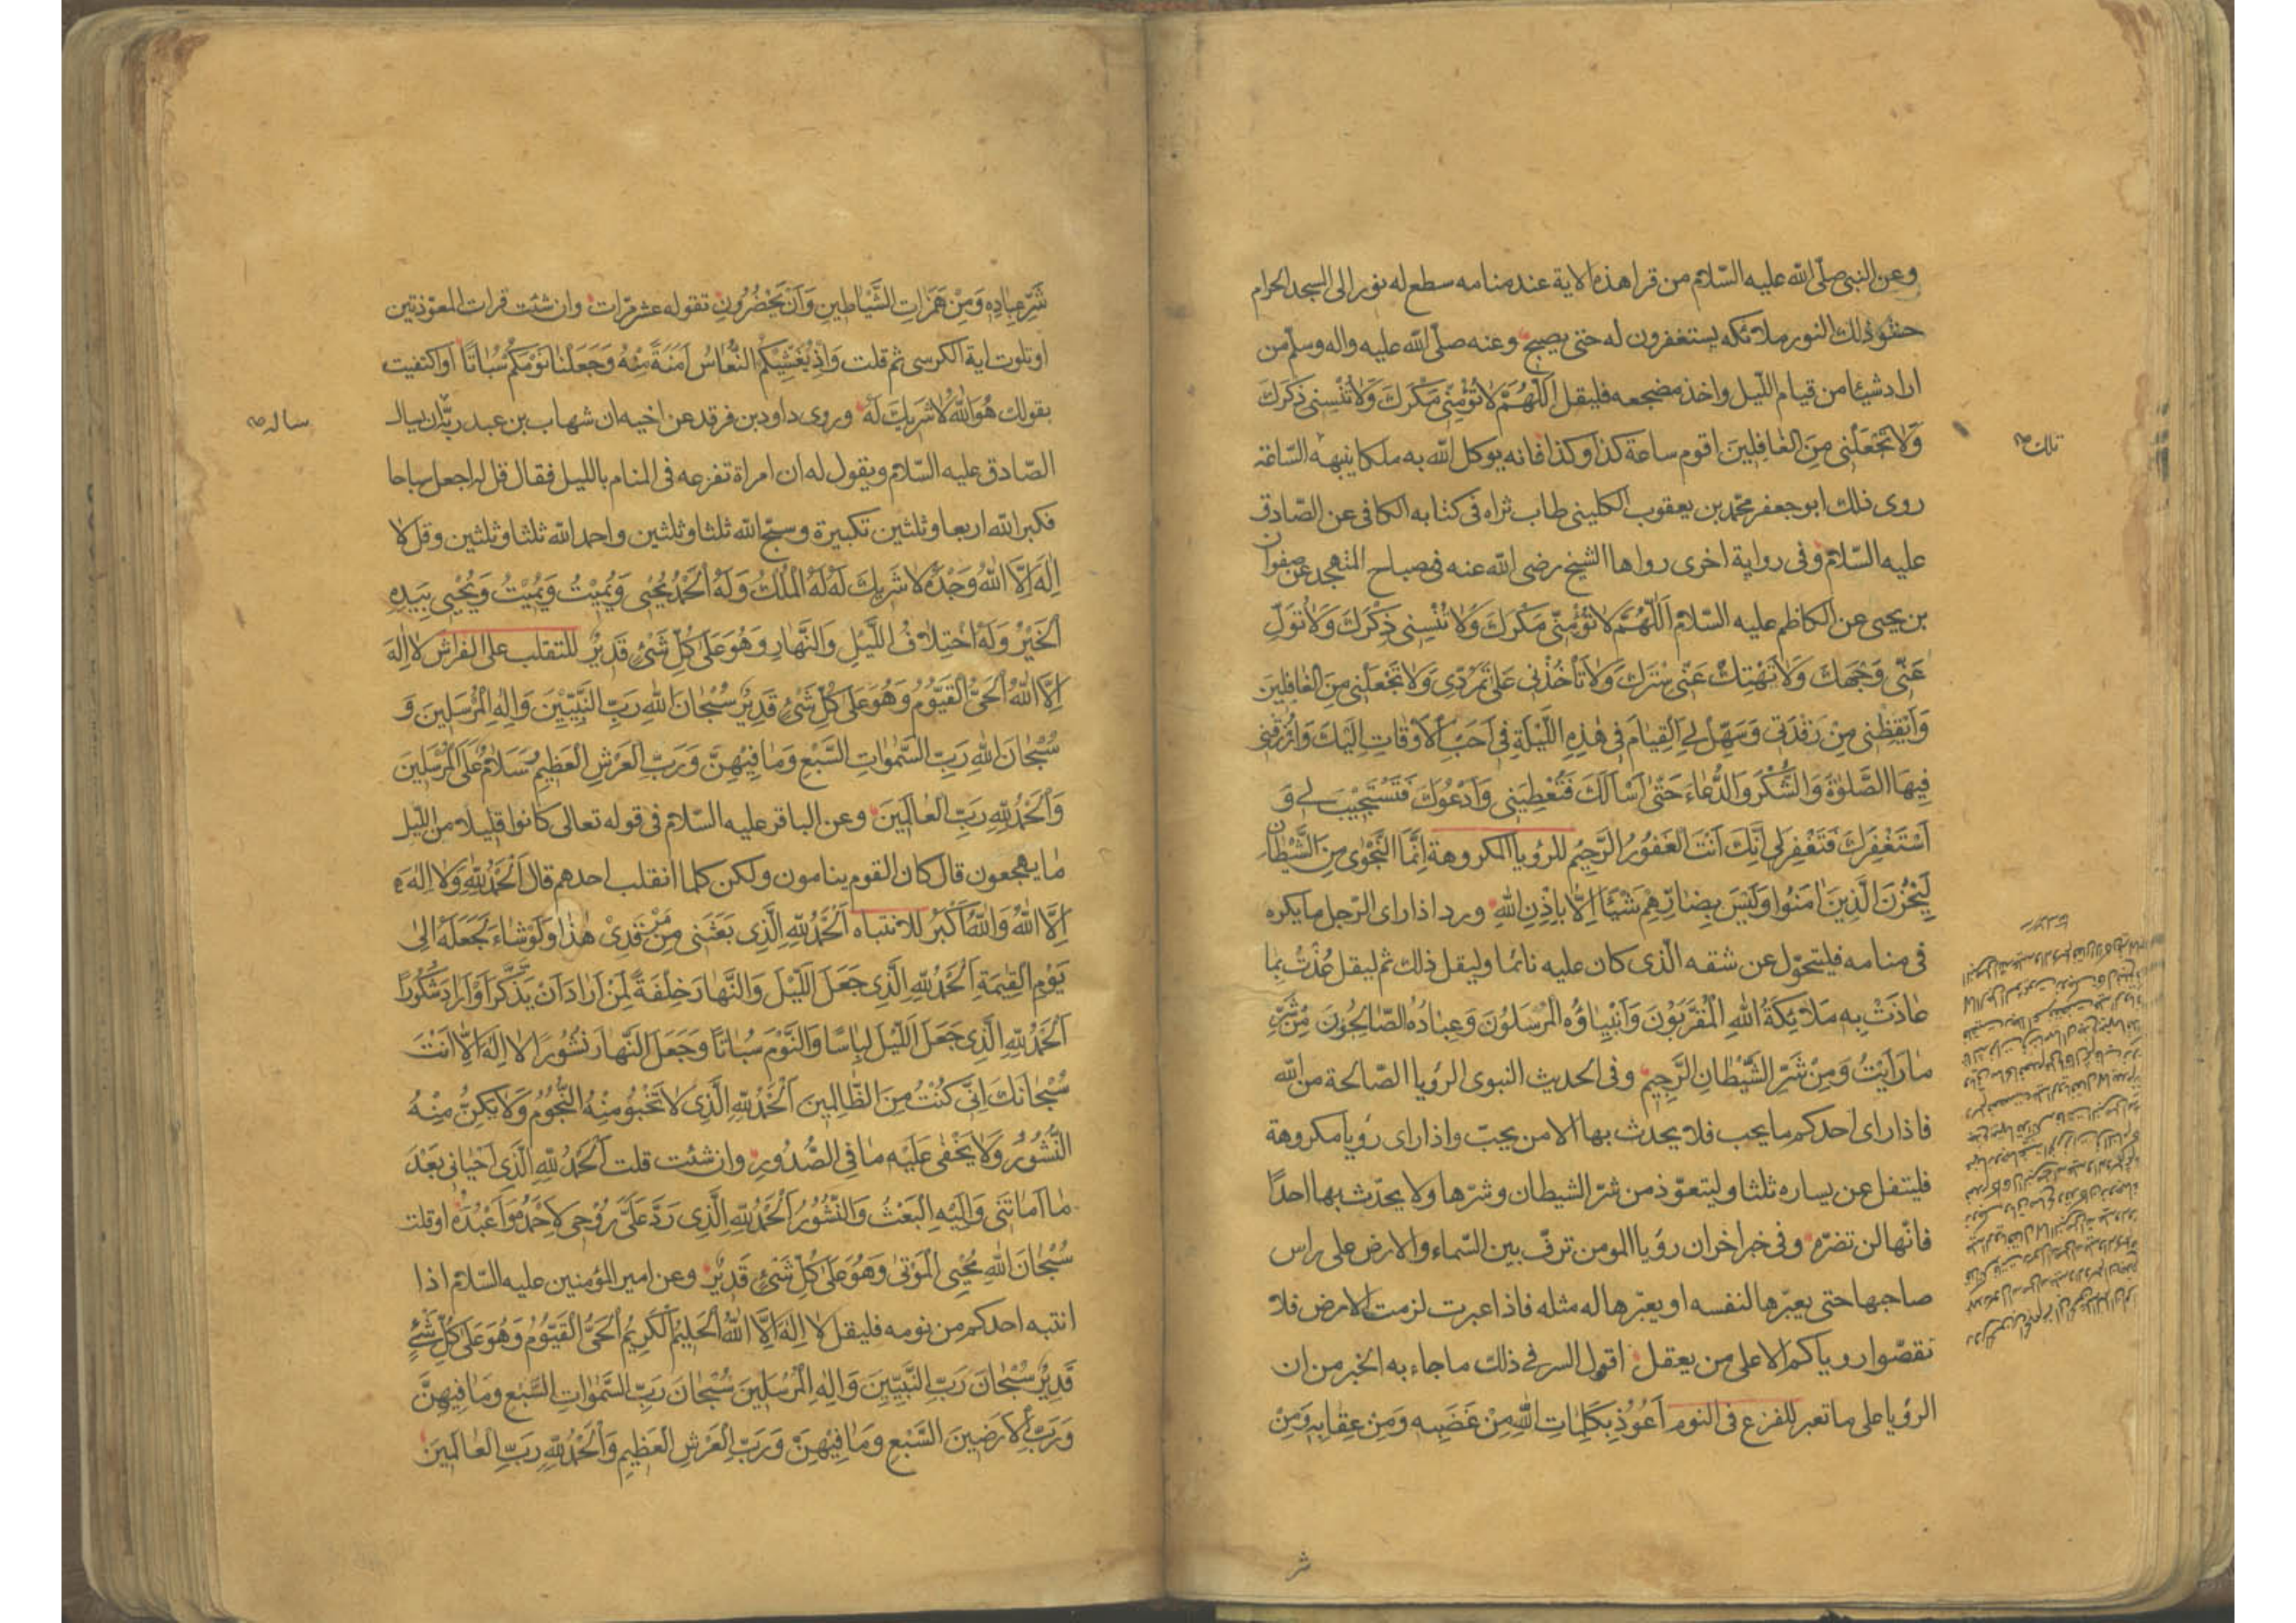 وعن النبي صلّى الله عليه السّلام من قرا هذه الاية عند منامه سطع له نور الى المسجد الحرام
حشو ذلك النور ملائكه يستغفرون له حتى يصبح وعنه صلّى الله عليه واله وسلم من
اراد شيئا من قيام اللّيل واخذ مضجعه فليقل اَللّهُمَّ لاٰ تُؤْمِنّي مَكْرَكَ وَلاٰ تُنْسِنى ذِكْرَكَ
وَلاٰ تَجْعَلْنى مِنَ الْغٰافِلينَ اقوم ساعة كذا وكذا فانه يوكل الله به ملكا ينبهه السّاعة
تلك صح
روى ذلك ابو جعفر محمّد بن يعقوب الكليني طاب ثراه فى كتابه الكافى عن الصّادق
عليه السّلام وفى رواية اخرى رواها الشيخ رضى الله عنه فى مصباح المتهجد عن صفوان
بن يحيى عن الكاظم عليه السّلام اَللّهُمَّ لاٰ تُؤْمِنّي مَكْرَكَ وَلاٰ تُنْسِنى ذِكْرَكَ وَلاٰ تُوَلِّ
عَنّى وَجْهَكَ وَلاٰ تَهْتِكْ عَنّى سِتْرَكَ وَلاٰ تَأْخُذْنى عَلىٰ تَمَرُّدى وَلاٰ تَجْعَلْنى مِنَ الْغٰافِلينَ
وَاَيْقِظْنى مِنْ رَقْدَتى وَسَهِّلْ لِيَ الْقِيٰامَ فى هٰذِهِ اللَّيْلَةِ فى اَحَبِّ الْاَوْقٰاتِ اِلَيْكَ وَارْزُقْنى
فيهَا الصَّلوٰةَ وَالشُّكْرَ وَالدُّعٰاءَ حَتّىٰ اَسْاَلَكَ فَتُعْطِيَنى وَاَدْعُوَكَ فَتَسْتَجيبَ لي وَ
اَسْتَغْفِرَكَ فَتَغْفِرَ لى اِنَّكَ اَنْتَ الْغَفُورُ الرَّحيمُ للرؤيا المكروهة اِنَّمَا النَّجْوٰى مِنَ الشَّيْطٰانِ
لِيَحْزُنَ الَّذينَ اٰمَنُوا وَلَيْسَ بِضٰارِّهِمْ شَيْئًا اِلّاٰ بِاِذْنِ اللهِ ورد اذا راى الرّجل ما يكره
فى منامه فليتحوّل عن شقه الّذى كان عليه نائما وليقل ذلك ثم ليقل عُذْتُ بِمٰا
عٰاذَتْ بِهِ مَلاٰئِكَةُ اللهِ الْمُقَرَّبُونَ وَاَنْبِيٰاؤُهُ الْمُرْسَلُونَ وَعِبٰادُهُ الصّٰالِحُونَ مِنْ شَرِّ
مٰا رَاَيْتُ وَمِنْ شَرِّ الشَّيْطٰانِ الرَّجيمِ وفى الحديث النبوى الرؤيا الصّالحة من الله
فاذا راى احدكم ما يحب فلا يحدث بها الا من يحبّ واذا راى رؤيا مكروهة
فليتفل عن يساره ثلثا وليتعوّذ من شرّ الشيطان وشرّها ولا يحدّث بها احدًا
فانّها لن تضرّه وفى خبر اخر ان رؤيا المومن ترفّ بين السّماء والارض على راس
صاحبها حتى يعبّرها لنفسه او يعبّرها له مثله فاذا عبرت لزمت الارض فلا
تقصّوا روياكم الا على من يعقل اقول السر في ذلك ما جاء به الخبر من ان
الرؤيا على ما تعبر للفزع فى النوم اَعُوذُ بِكَلِمٰاتِ اللهِ مِنْ غَضَبِهِ وَمِنْ عِقٰابِهِ وَمِنْ
شر
شَرِّ عِبٰادِهِ وَمِنْ هَمَزٰاتِ الشَّيٰاطينِ وَاَنْ يَحْضُرُونِ تقوله عشر مرّات وان شئت قرات المعوّذتين
او تلوت اية الكرسى ثم قلت وَاِذْ يُغَشّيكُمُ النُّعٰاسَ اَمَنَةً مِنْهُ وَجَعَلْنٰا نَوْمَكُمْ سُبٰاتًا او اكتفيت
بقولك هُوَ اللهُ لاٰ شَريكَ لَهُ وروى داود بن فرقد عن اخيه ان شهاب بن عبد ربّه ان يسال
ساله صح
الصّادق عليه السّلام ويقول له ان امراة تفزعه فى المنام بالليل فقال قل له اجعل سباحا
فكبر الله اربعا وثلثين تكبيرة وسبّح الله ثلثا وثلثين واحمد الله ثلثا وثلثين وقل لاٰ
اِلٰهَ اِلَّا اللهُ وَحْدَهُ لاٰ شَريكَ لَهُ لَهُ الْمُلْكُ وَلَهُ الْحَمْدُ يُحْيى وَيُميتُ وَيُميتُ وَيُحْيى بِيَدِهِ
الْخَيْرُ وَلَهُ اخْتِلاٰفُ اللَّيْلِ وَالنَّهٰارِ وَهُوَ عَلىٰ كُلِّ شَىْءٍ قَديرٌ للتقلب على الفراش لاٰ اِلٰهَ
اِلَّا اللهُ الْحَىُّ الْقَيُّومُ وَهُوَ عَلىٰ كُلِّ شَىْءٍ قَديرٌ سُبْحٰانَ اللهِ رَبِّ النَّبِيّينَ وَاِلٰهِ الْمُرْسَلينَ وَ
سُبْحٰانَ اللهِ رَبِّ السَّمٰوٰاتِ السَّبْعِ وَمٰا فيهِنَّ وَرَبِّ الْعَرْشِ الْعَظيمِ وَسَلاٰمٌ عَلَى الْمُرْسَلينَ
وَالْحَمْدُ لِلّٰهِ رَبِّ الْعٰالَمينَ وعن الباقر عليه السّلام فى قوله تعالى كانوا قليلا من اللّيل
ما يهجعون قال كان القوم ينامون ولكن كلما انقلب احدهم قال اَلْحَمْدُ لِلّٰهِ وَلاٰ اِلٰهَ
اِلَّا اللهُ وَاللهُ اَكْبَرُ للانتباه اَلْحَمْدُ لِلّٰهِ الَّذى بَعَثَنى مِنْ مَرْقَدى هٰذٰا وَلَوْ شٰاءَ لَجَعَلَهُ اِلىٰ
يَوْمِ الْقِيٰمَةِ اَلْحَمْدُ لِلّٰهِ الَّذى جَعَلَ اللَّيْلَ وَالنَّهٰارَ خِلْفَةً لِمَنْ اَرٰادَ اَنْ يَذَّكَّرَ اَوْ اَرٰادَ شُكُورًا
اَلْحَمْدُ لِلّٰهِ الَّذى جَعَلَ اللَّيْلَ لِبٰاسًا وَالنَّوْمَ سُبٰاتًا وَجَعَلَ النَّهٰارَ نُشُورًا لاٰ اِلٰهَ اِلّاٰ اَنْتَ
سُبْحٰانَكَ اِنّى كُنْتُ مِنَ الظّٰالِمينَ اَلْحَمْدُ لِلّٰهِ الَّذى لاٰ تَخْبُو مِنْهُ النُّجُومُ وَلاٰ يَكِنُّ مِنْهُ
النُّشُورُ وَلاٰ يَخْفىٰ عَلَيْهِ مٰا فِى الصُّدُورِ وان شئت قلت اَلْحَمْدُ لِلّٰهِ الَّذى اَحْيٰانى بَعْدَ
مٰا اَمٰاتَنى وَاِلَيْهِ الْبَعْثُ وَالنُّشُورُ اَلْحَمْدُ لِلّٰهِ الَّذى رَدَّ عَلَىَّ رُوحى لِاَحْمَدَهُ وَاَعْبُدَهُ او قلت
سُبْحٰانَ اللهِ مُحْيِى الْمَوْتىٰ وَهُوَ عَلىٰ كُلِّ شَىْءٍ قَديرٌ وعن امير المؤمنين عليه السّلام اذا
انتبه احدكم من نومه فليقل لاٰ اِلٰهَ اِلَّا اللهُ الْحَليمُ الْكَريمُ الْحَىُّ الْقَيُّومُ وَهُوَ عَلىٰ كُلِّ شَىْءٍ
قَديرٌ سُبْحٰانَ رَبِّ النَّبِيّينَ وَاِلٰهِ الْمُرْسَلينَ سُبْحٰانَ رَبِّ السَّمٰوٰاتِ السَّبْعِ وَمٰا فيهِنَّ
وَرَبِّ الْاَرَضينَ السَّبْعِ وَمٰا فيهِنَّ وَرَبِّ الْعَرْشِ الْعَظيمِ وَالْحَمْدُ لِلّٰهِ رَبِّ الْعٰالَمينَ